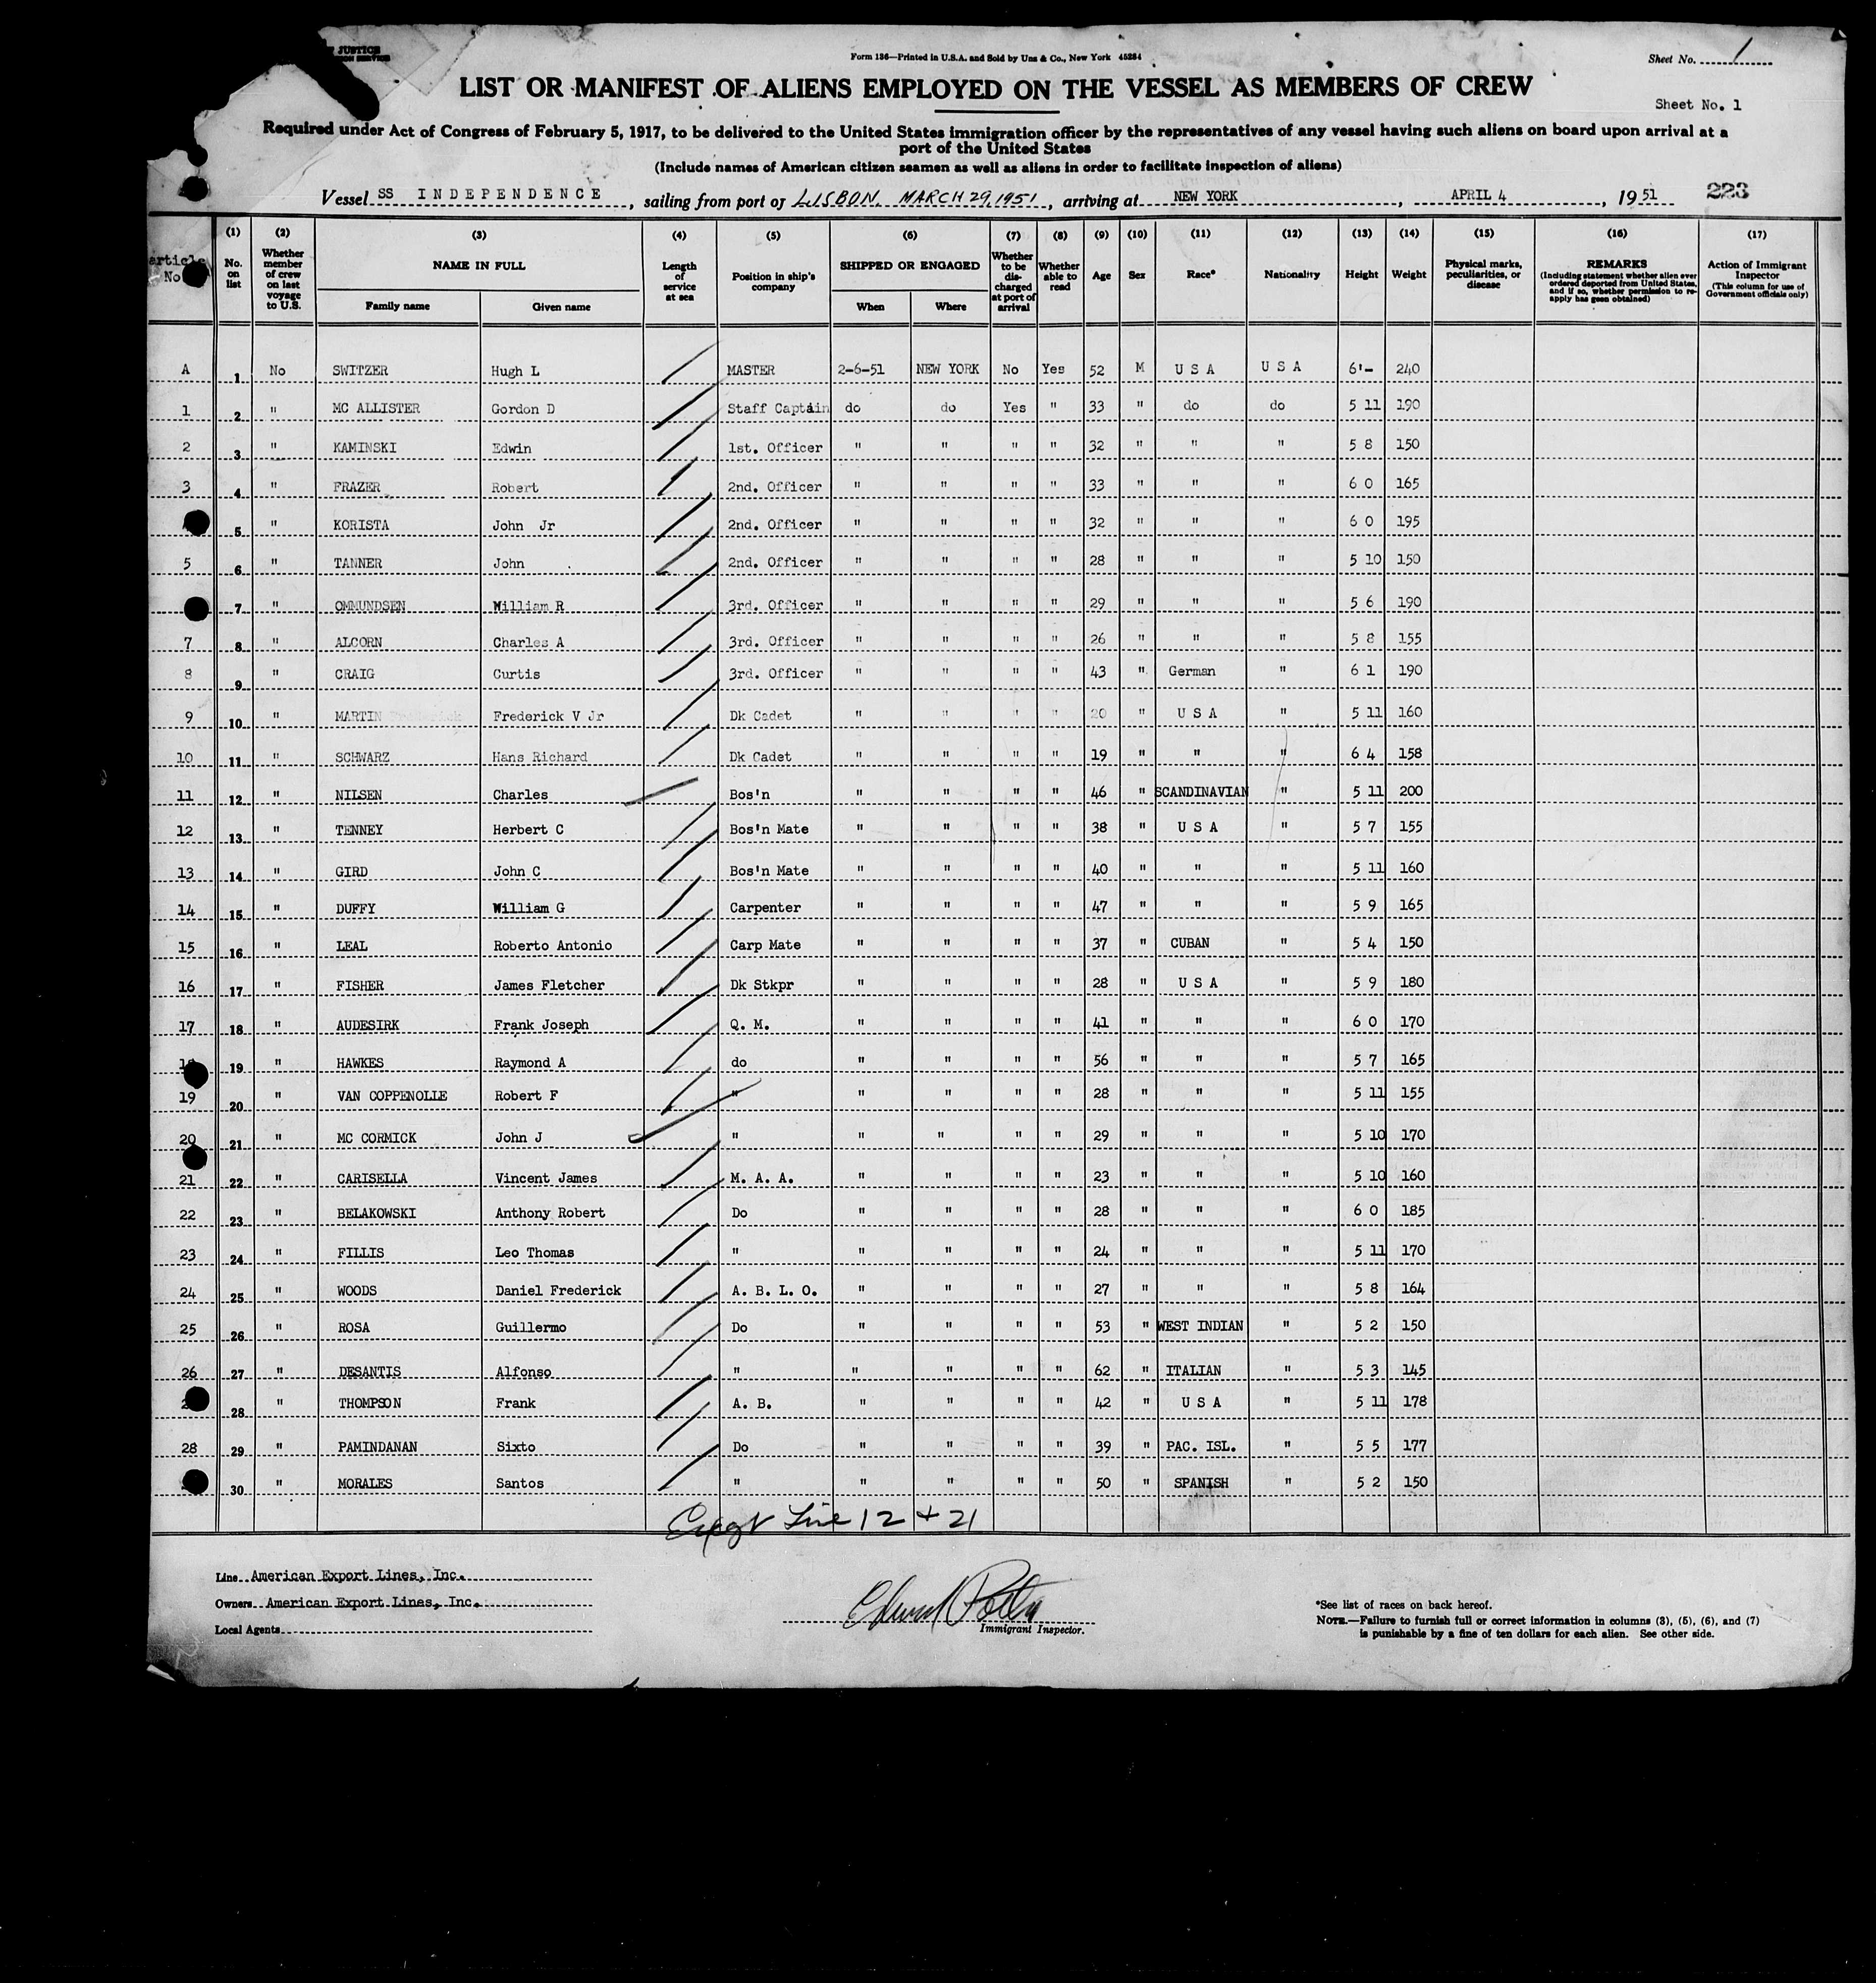 JUSTICE
Form 136—Printed in U.S.A. and Sold by Unz & Co., New York 45284
Sheet No. 1
LIST OR MANIFEST OF ALIENS EMPLOYED ON THE VESSEL AS MEMBERS OF CREW
Sheet No. 1
Required under Act of Congress of February 5, 1917, to be delivered to the United States immigration officer by the representatives of any vessel having such aliens on board upon arrival at a
port of the United States
(Include names of American citizen seamen as well as aliens in order to facilitate inspection of aliens)
Vessel SS INDEPENDENCE, sailing from port of LISBON, MARCH 29, 1951, arriving at NEW YORK, APRIL 4, 1951 223
article No. (1) No. on list (2) Whether member of crew on last voyage to U.S. (3) NAME IN FULL Family name Given name (4) Length of service at sea (5) Position in ship's company (6) SHIPPED OR ENGAGED When Where (7) Whether to be discharged at port of arrival (8) Whether able to read (9) Age (10) Sex (11) Race* (12) Nationality (13) Height (14) Weight (15) Physical marks, peculiarities, or disease (16) REMARKS (Including statement whether alien ever ordered deported from United States, and if so, whether permission to re-apply has been obtained) (17) Action of Immigrant Inspector (This column for use of Government officials only)
A 1 No SWITZER Hugh L MASTER 2-6-51 NEW YORK No Yes 52 M U S A U S A 6'- 240
1 2 " MC ALLISTER Gordon D Staff Captain do do Yes " 33 " do do 5 11 190
2 3 " KAMINSKI Edwin 1st. Officer " " " " 32 " " " 5 8 150
3 4 " FRAZER Robert 2nd. Officer " " " " 33 " " " 6 0 165
5 " KORISTA John Jr 2nd. Officer " " " " 32 " " " 6 0 195
5 6 " TANNER John 2nd. Officer " " " " 28 " " " 5 10 150
7 " OMMUNDSEN William R 3rd. Officer " " " " 29 " " " 5 6 190
7 8 " ALCORN Charles A 3rd. Officer " " " " 26 " " " 5 8 155
8 9 " CRAIG Curtis 3rd. Officer " " " " 43 " German " 6 1 190
9 10 " MARTIN Frederick V Jr Dk Cadet " " " " 20 " U S A " 5 11 160
10 11 " SCHWARZ Hans Richard Dk Cadet " " " " 19 " " " 6 4 158
11 12 " NILSEN Charles Bos'n " " " " 46 " SCANDINAVIAN " 5 11 200
12 13 " TENNEY Herbert C Bos'n Mate " " " " 38 " U S A " 5 7 155
13 14 " GIRD John C Bos'n Mate " " " " 40 " " " 5 11 160
14 15 " DUFFY William G Carpenter " " " " 47 " " " 5 9 165
15 16 " LEAL Roberto Antonio Carp Mate " " " " 37 " CUBAN " 5 4 150
16 17 " FISHER James Fletcher Dk Stkpr " " " " 28 " U S A " 5 9 180
17 18 " AUDESIRK Frank Joseph Q. M. " " " " 41 " " " 6 0 170
19 " HAWKES Raymond A do " " " " 56 " " " 5 7 165
19 20 " VAN COPPENOLLE Robert F " " " " " 28 " " " 5 11 155
20 21 " MC CORMICK John J " " " " " 29 " " " 5 10 170
21 22 " CARISELLA Vincent James M. A. A. " " " " 23 " " " 5 10 160
22 23 " BELAKOWSKI Anthony Robert Do " " " " 28 " " " 6 0 185
23 24 " FILLIS Leo Thomas " " " " " 24 " " " 5 11 170
24 25 " WOODS Daniel Frederick A. B. L. O. " " " " 27 " " " 5 8 164
25 26 " ROSA Guillermo Do " " " " 53 " WEST INDIAN " 5 2 150
26 27 " DESANTIS Alfonso " " " " " 62 " ITALIAN " 5 3 145
28 " THOMPSON Frank A. B. " " " " 42 " U S A " 5 11 178
28 29 " PAMINDANAN Sixto Do " " " " 39 " PAC. ISL. " 5 5 177
30 " MORALES Santos " " " " " 50 " SPANISH " 5 2 150
Except Line 12 + 21
Line American Export Lines, Inc.
Owners American Export Lines, Inc.
Local Agents
Immigrant Inspector.
*See list of races on back hereof.
NOTE.—Failure to furnish full or correct information in columns (3), (5), (6), and (7)
is punishable by a fine of ten dollars for each alien. See other side.